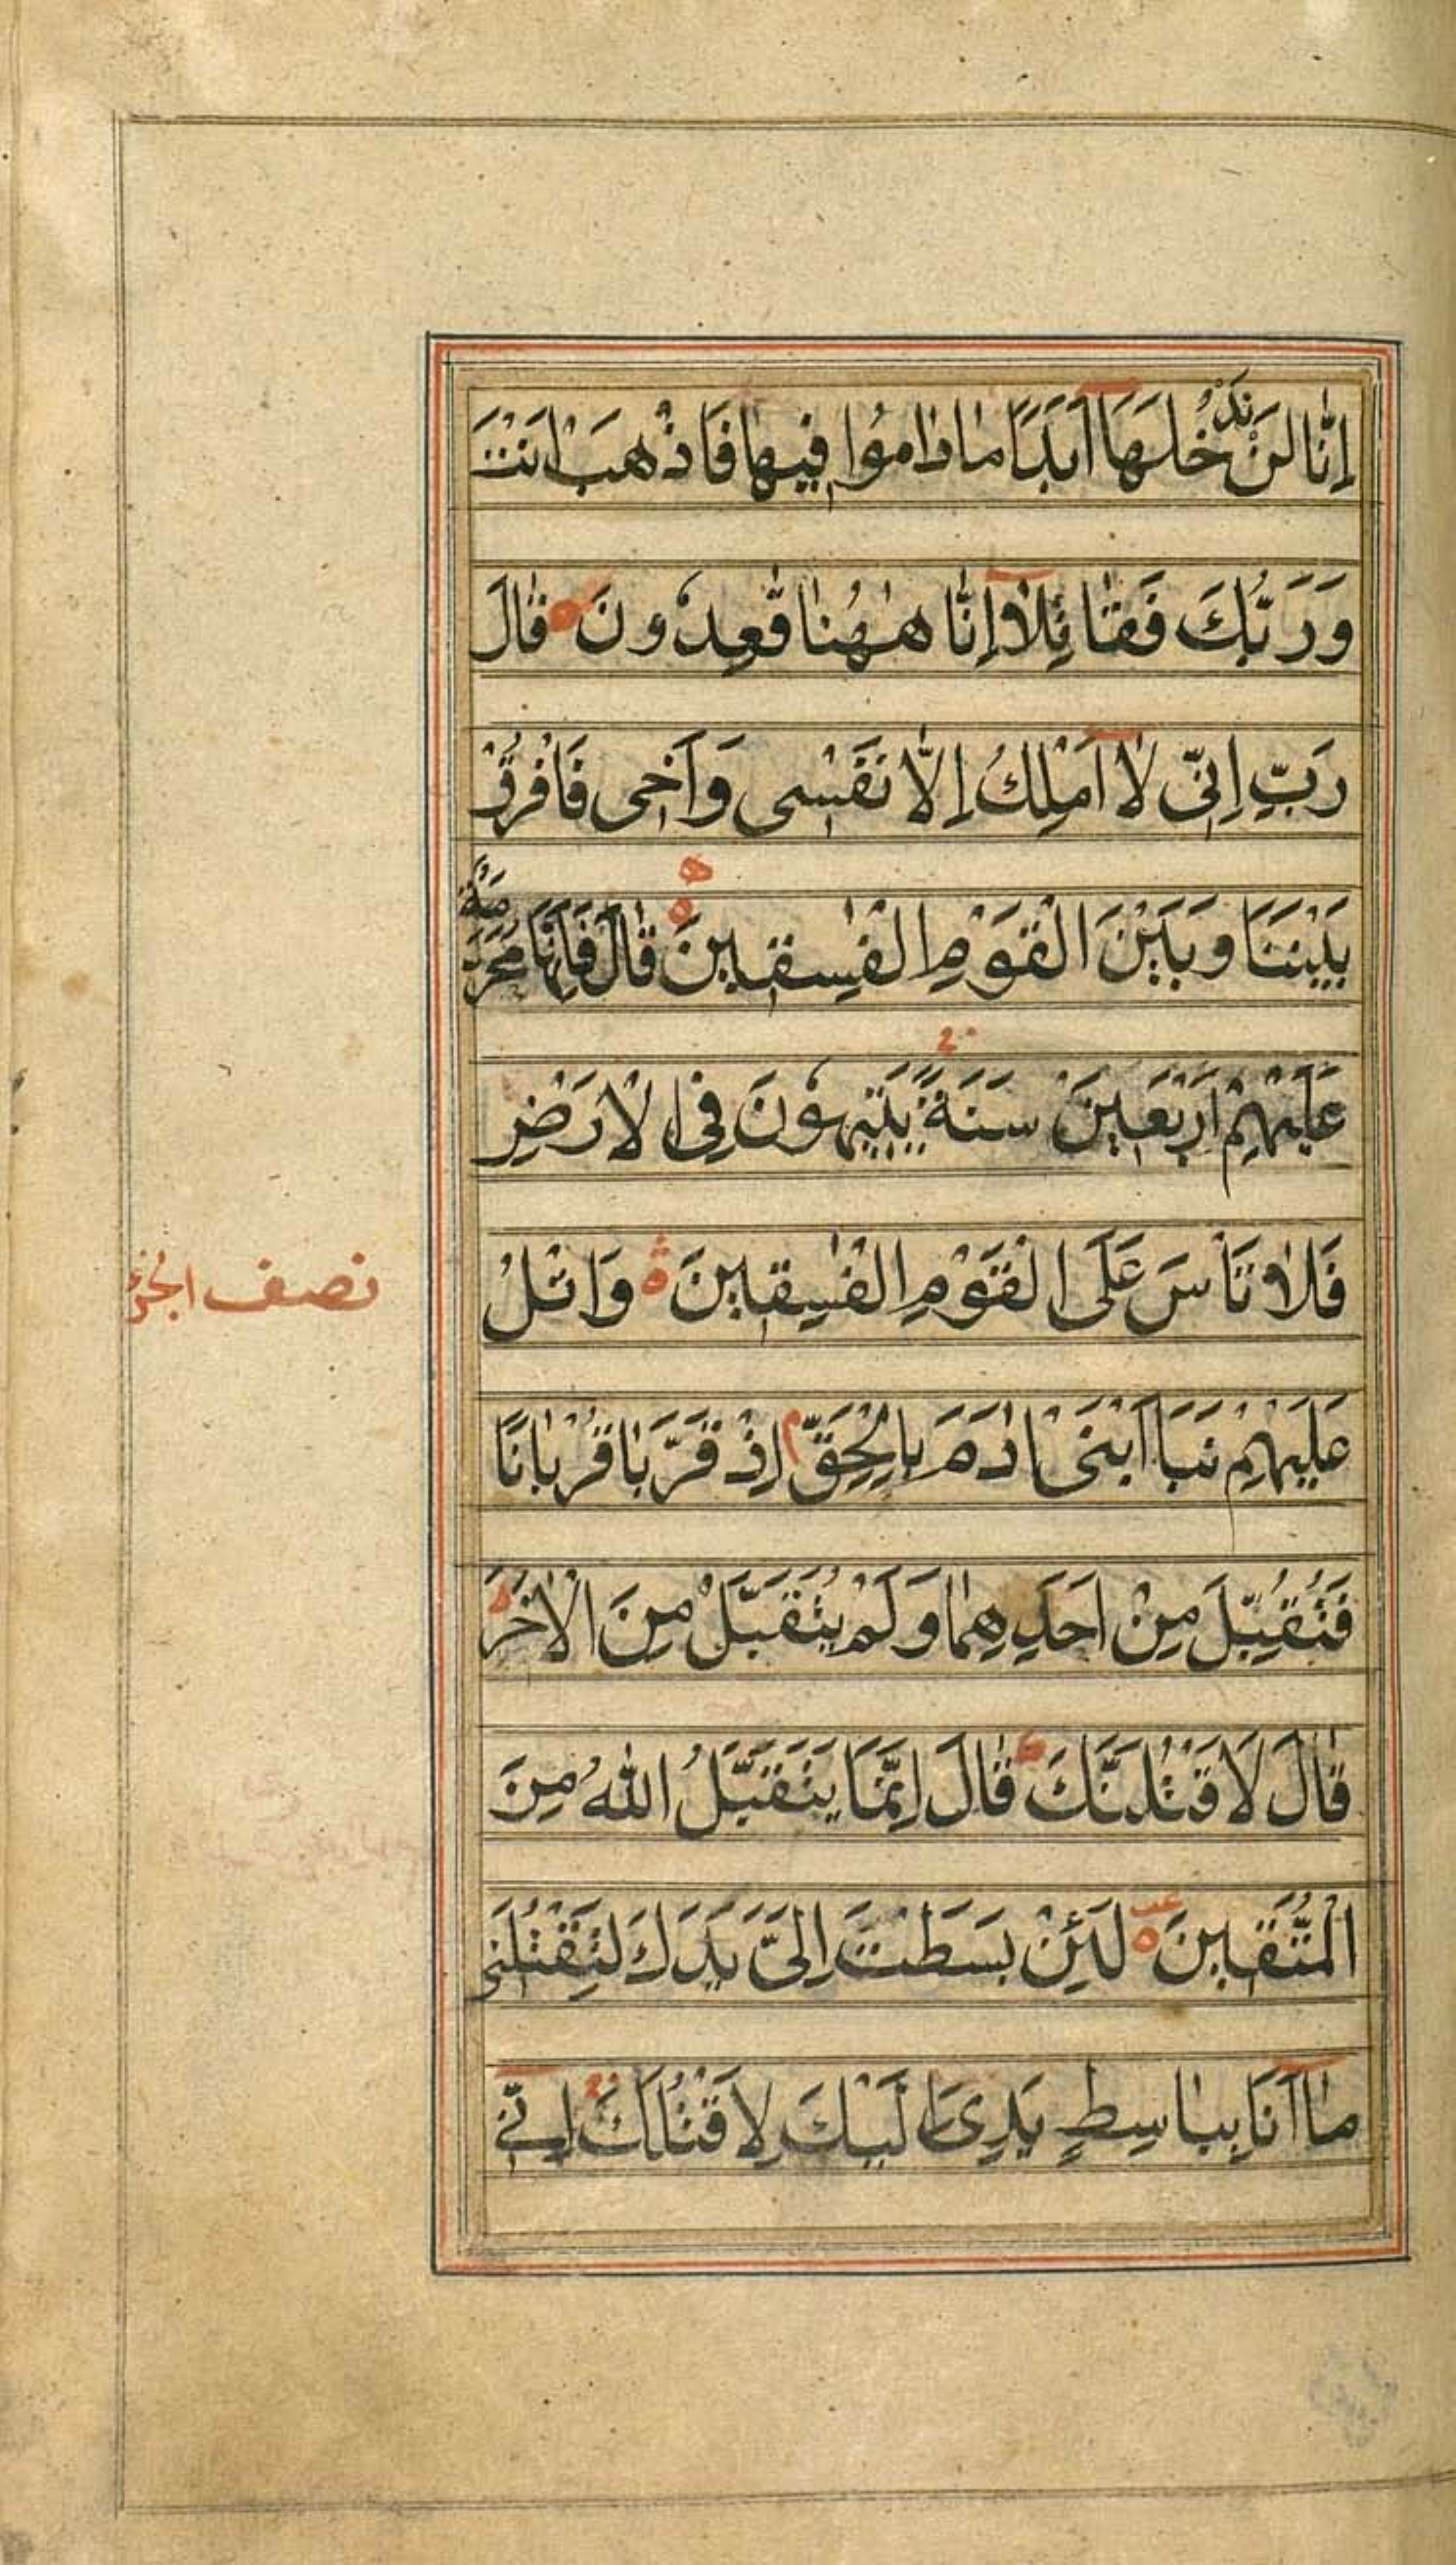 اِنَّا لَنْ نَدْخُلَهَا اَبَدًا مَا دَامُوا فِيهَا فَاذْهَبْ اَنْتَ
وَرَبُّكَ فَقَاتِلَا اِنَّا هٰهُنَا قٰعِدُونَ قَالَ
رَبِّ اِنِّى لَا اَمْلِكُ اِلَّا نَفْسِى وَاَخِى فَافْرُقْ
بَيْنَنَا وَبَيْنَ الْقَوْمِ الْفٰسِقِينَ قَالَ فَاِنَّهَا مُحَرَّمَةٌ
عَلَيْهِمْ اَرْبَعِينَ سَنَةً يَتِيهُونَ فِى الْاَرْضِ
فَلَا تَاْسَ عَلَى الْقَوْمِ الْفٰسِقِينَ وَاتْلُ
نصف الجزء
عَلَيْهِمْ نَبَاَ ابْنَىْ اٰدَمَ بِالْحَقِّ اِذْ قَرَّبَا قُرْبَانًا
فَتُقُبِّلَ مِنْ اَحَدِهِمَا وَلَمْ يُتَقَبَّلْ مِنَ الْاٰخَرِ
قَالَ لَاَقْتُلَنَّكَ قَالَ اِنَّمَا يَتَقَبَّلُ اللّٰهُ مِنَ
الْمُتَّقِينَ لَئِنْ بَسَطْتَ اِلَىَّ يَدَكَ لِتَقْتُلَنِى
مَا اَنَا بِبَاسِطٍ يَدِىَ اِلَيْكَ لِاَقْتُلَكَ اِنِّى